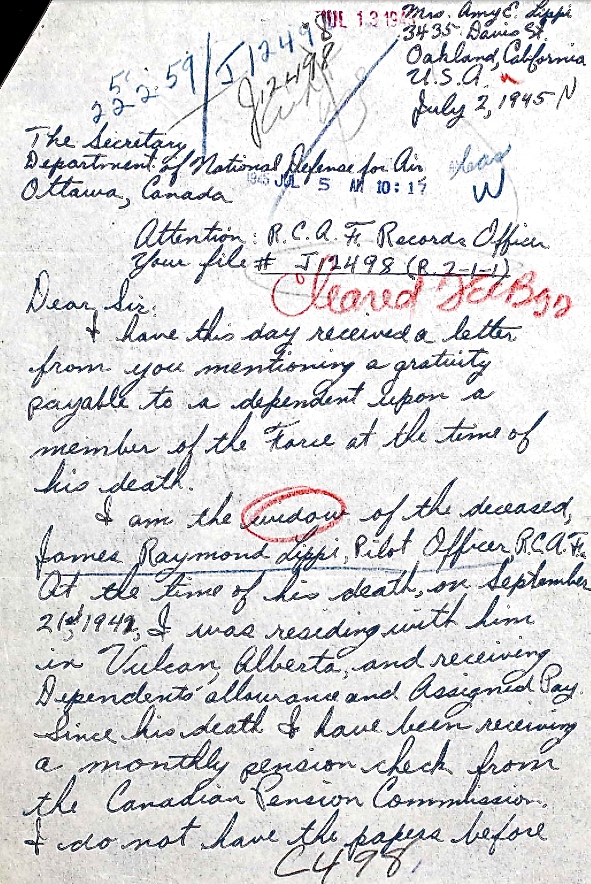 JUL 13 194
Mrs. Amy E. Lippi
3435 Davis St.
Oakland, California
U.S.A.
July 2, 1945 N
22 2 59
5
J 12498
J12498
The Secretary
Department of National Defense for Air
Ottawa, Canada
1945 JUL 5 AM 10:17
W
Attention: R.C.A.F. Records Officer
Your file # J 12498 (R.2-1-1)
Cleared
Dear Sir:
I have this day received a letter
from you mentioning a gratuity
payable to a dependent upon a
member of the Force at the time of
his death.
I am the widow of the deceased,
James Raymond Lippi, Pilot Officer, R.C.A.F.
At the time of his death, on September
21st, 1942, I was residing with him
in Vulcan, Alberta, and receiving
Dependents' allowance and Assigned Pay.
Since his death I have been receiving
a monthly pension check from
the Canadian Pension Commission.
I do not have the papers before
C498